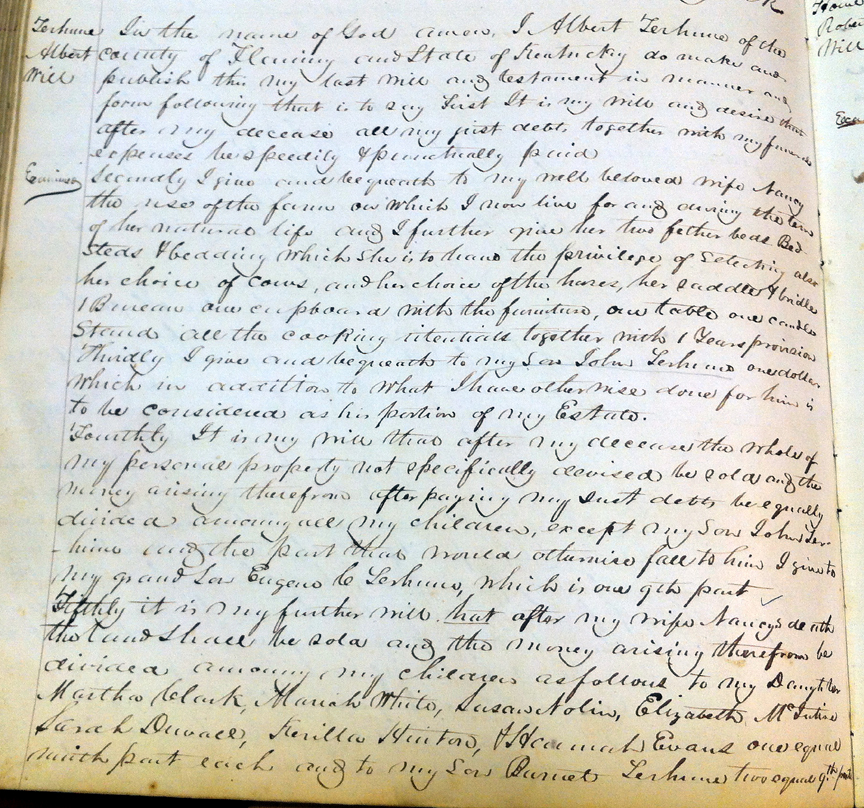 Terhune In the name of God amen, I Albert Terhune of the
Albert county of Fleming and State of Kentucky do make and
Will publish this my last will and testament in manner and
form following that is to say First It is my will and desire that
after my decease all my just debts together with my funeral
expenses be speedily & punctually paid
Secondly I give and bequeath to my well beloved wife Nancy
the use of the farm on which I now live for and during the term
of her natural life and I further give her two father beds Bed-
steds & bedding which she is to have the privilege of Selecting also
her choice of cows, and her choice of the horses, her saddle & bridle
1 Bureau one cupboard with the furniture, one table one candle
Stand all the cooking utentials together with 1 Years provision
Thirdly I give and bequeath to my Son John Terhune one dollar
which in addition to what I have otherwise done for him is
to be considered as his portion of my Estate.
Fourthly It is my will that after my decease the whole of
my personal property not specifically devised be sold and the
money arising therefrom after paying my Just debts be equally
divided among all my children, except my Son John Ter-
-hune and the part that would otherwise fall to him I give to
my grand Son Eugene C Terhune, which is one 9th part
Fifthly it is my further will that after my wife Nancys death
the land shall be sold and the money arising therefrom be
divided among my children as follows to my Daughter
Martha Clark, Mariah White, Susan Nolin, Elizabeth McIntire
Sarah Duvall, Serilla Hinton, & Hannah Evans one equal
ninth part each and to my Son Barnet Terhune two equal 9th part
Home
Rober
Will